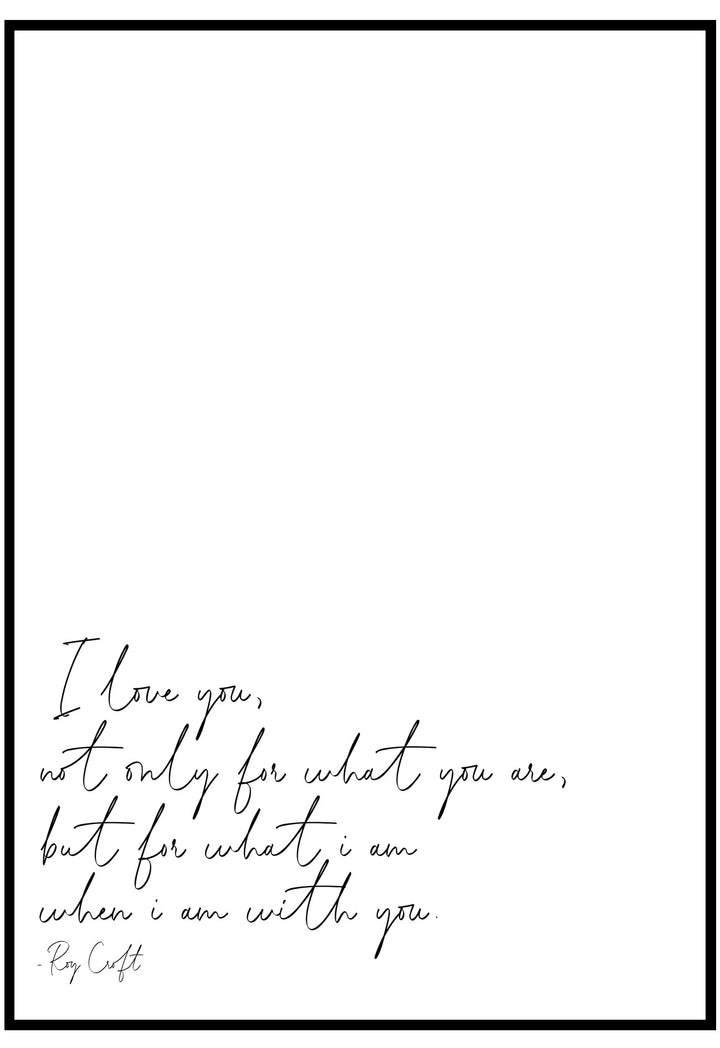 I love you,
not only for what you are,
but for what i am
when i am with you.
-Roy Croft